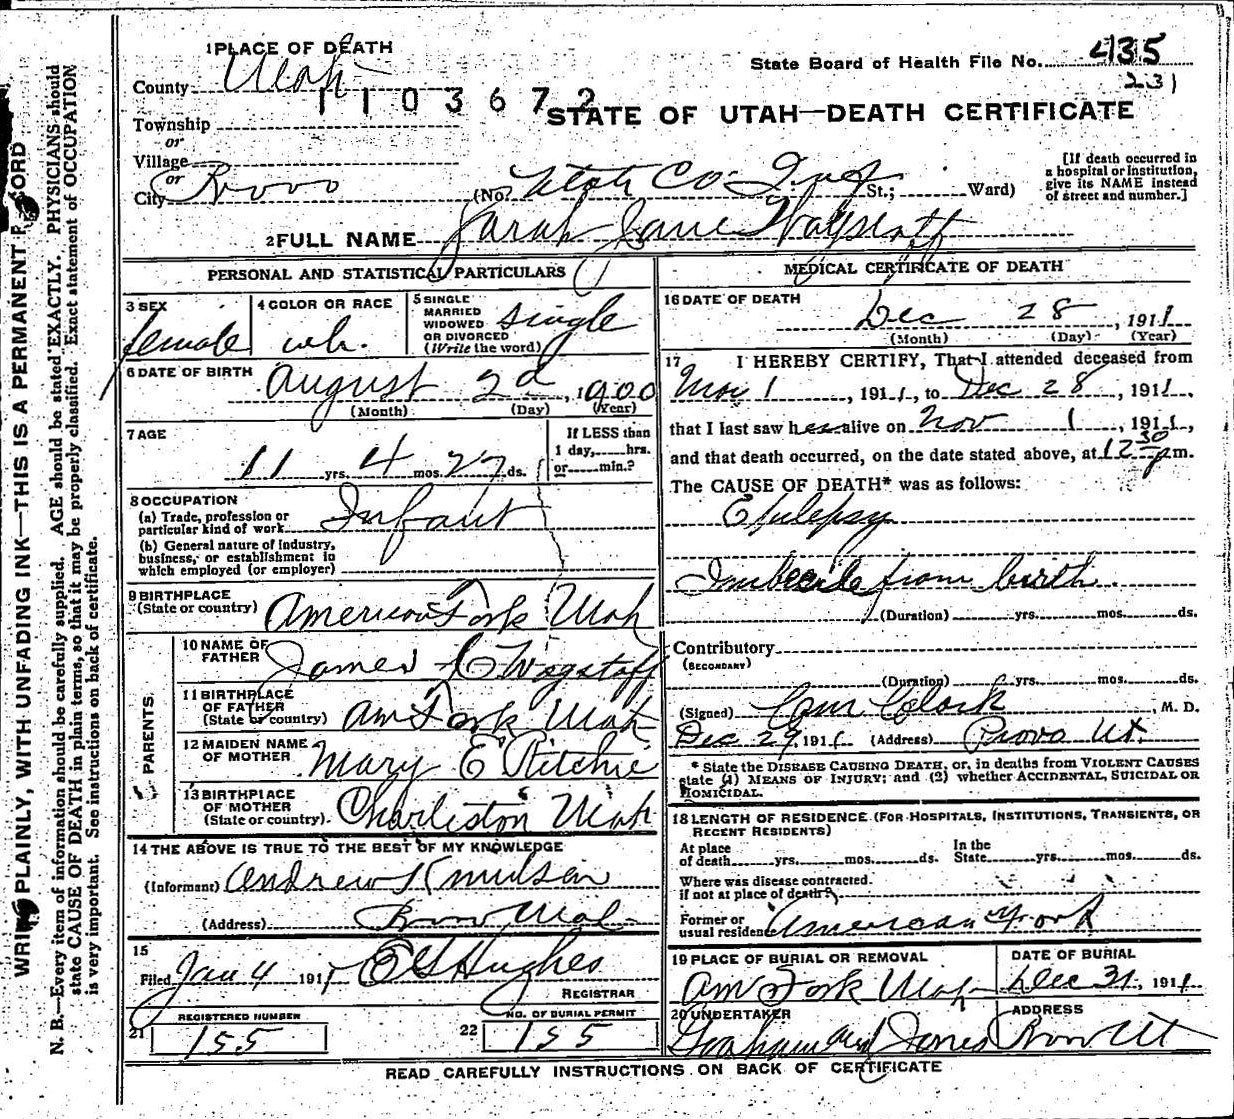 1 PLACE OF DEATH
State Board of Health File No. 435
231
County Utah
1103672
STATE OF UTAH—DEATH CERTIFICATE
Township
or
Village
or
City Provo (No. Utah Co. Inf St.; Ward)
[If death occurred in
a hospital or institution,
give its NAME instead
of street and number.]
2 FULL NAME Sarah Jane Wagstaff
PERSONAL AND STATISTICAL PARTICULARS
3 SEX
female
4 COLOR OR RACE
wh.
5 SINGLE
MARRIED
WIDOWED
OR DIVORCED
(Write the word)
single
6 DATE OF BIRTH
August 2d, 1900
(Month) (Day) (Year)
7 AGE
11 yrs. 4 mos. 27 ds.
If LESS than
1 day, hrs.
or min.?
8 OCCUPATION
(a) Trade, profession or
particular kind of work Infant
(b) General nature of industry,
business, or establishment in
which employed (or employer)
9 BIRTHPLACE
(State or country) American Fork Utah
PARENTS
10 NAME OF
FATHER James C Wagstaff
11 BIRTHPLACE
OF FATHER
(State or country) Am Fork Utah
12 MAIDEN NAME
OF MOTHER Mary E Ritchie
13 BIRTHPLACE
OF MOTHER
(State or country) Charleston Utah
14 THE ABOVE IS TRUE TO THE BEST OF MY KNOWLEDGE
(Informant) Andrew Knudsen
(Address) Provo Utah
15
Filed Jan 4 191 E G Hughes
REGISTRAR
REGISTERED NUMBER
21 155
NO. OF BURIAL PERMIT
22 155
MEDICAL CERTIFICATE OF DEATH
16 DATE OF DEATH
Dec 28, 1911
(Month) (Day) (Year)
17 I HEREBY CERTIFY, That I attended deceased from
Nov 1, 1911, to Dec 28, 1911,
that I last saw her alive on Nov 1, 1911,
and that death occurred, on the date stated above, at 12 30 p m.
The CAUSE OF DEATH* was as follows:
Epilepsy
Imbecile from birth
(Duration) yrs. mos. ds.
Contributory
(SECONDARY)
(Duration) yrs. mos. ds.
(Signed) Clark, M. D.
Dec 29, 1911 (Address) Provo Ut.
* State the DISEASE CAUSING DEATH, or, in deaths from VIOLENT CAUSES
state (1) MEANS OF INJURY; and (2) whether ACCIDENTAL, SUICIDAL OR
HOMICIDAL.
18 LENGTH OF RESIDENCE (FOR HOSPITALS, INSTITUTIONS, TRANSIENTS, OR
RECENT RESIDENTS)
At place
of death yrs. mos. ds.
In the
State yrs. mos. ds.
Where was disease contracted
if not at place of death?
Former or
usual residence American Fork
19 PLACE OF BURIAL OR REMOVAL
Am Fork Utah
DATE OF BURIAL
Dec 31, 1911
20 UNDERTAKER
Graham and Jones
ADDRESS
Provo Ut
READ CAREFULLY INSTRUCTIONS ON BACK OF CERTIFICATE
WRITE PLAINLY, WITH UNFADING INK—THIS IS A PERMANENT RECORD
N. B.—Every item of information should be carefully supplied. AGE should be stated EXACTLY. PHYSICIANS should
state CAUSE OF DEATH in plain terms, so that it may be properly classified. Exact statement of OCCUPATION
is very important. See instructions on back of certificate.